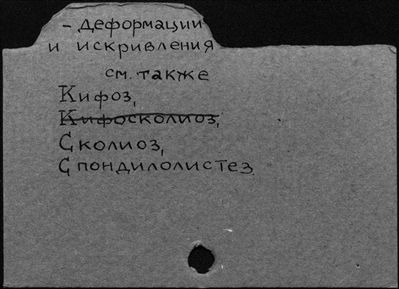 - деформации
и искривления
см. также
Кифоз,
Кифосколиоз,
Сколиоз,
Спондилолистез.